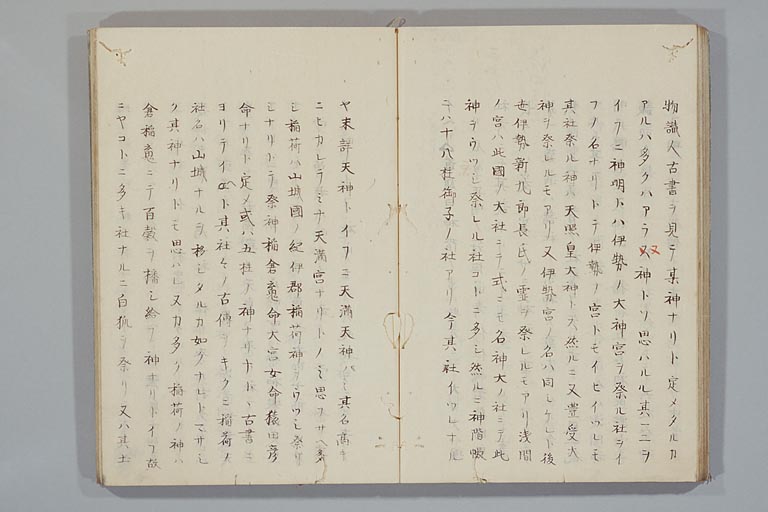 物識人古書ヲ見テ某神ナリト定メタルカ
アルハ多クハアラヌ神トソ思ハルル其一二ヲ
イフニ神明トハ伊勢ノ大神宮ヲ祭ル社ヲイ
フノ名ナリトテ伊勢ノ宮トモイヒイツレモ
其社祭ル神ハ天照皇大神トス然ルニ又豊受大
神ヲ祭レルモアリ又伊勢宮ノ名ハ同シケレト後
世伊勢新九郎長氏ノ霊ヲ祭レルモアリ浅間
ノ宮ハ此國ノ大社ニテ式ニモ名神大ノ社ニテ此
神ヲウツシ祭レル社コトニ多シ然ルニ神階帳
ニ八十八柱御子ノ社アリ今其社イツレナル
ヤ未詳天神トイフニ天満天神ハ其名高キ
ニヒカレテミナ天満宮ナリトノミ思フサヘ多
シ稲荷ハ山城國ノ紀伊郡稲荷神ヲウツシ祭リ
シナリトテ祭神稲倉魂命大宮女命猿田彦
命ナリト定メ或ハ五柱ノ神ナリナト古書ニ
ヨリテイヘト其社々ノ古傳ヲキクニ稲荷ノ
社名ハ山城ナルヲ移シタルカ如クナレトマサシ
ク其神ナリトモ思ハレス又カ多ク稲荷ノ神ハ
倉稲魂ニテ百穀ヲ播シ給フ神ナリトイフ故
ニヤコトニ多キ社ナルニ白狐ヲ祭リ又ハ其土